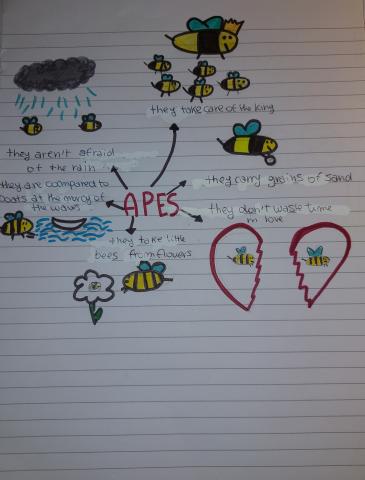 they take care of the king
they aren't afraid
of the rain
they carry grains of sand
they are coompared to
boats at the mercy of
the waves
APES
they don't waste time
in love
they take little
bees from flowers